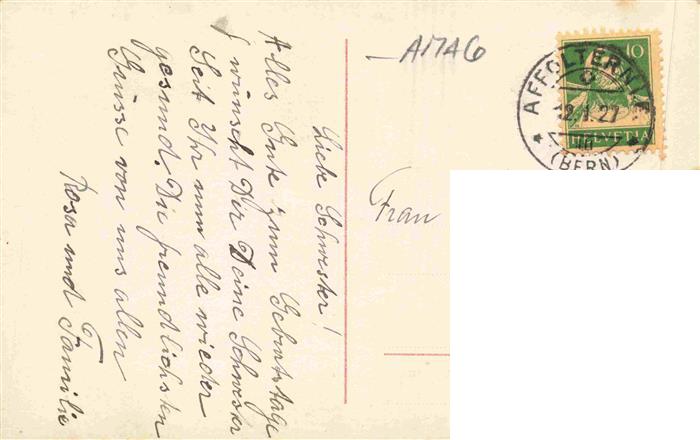 Liebe Schwester!
Alles Gute zum Geburtstage
wünscht Dir Deine Schwester
Seit Ihr nun alle wieder
gesund? Die freundlichsten
Grüsse von uns allen
Rosa und Familie
A17A6
Frau
10
HELVETIA
AFFOLTERN I/E
12.1.27
(BERN)